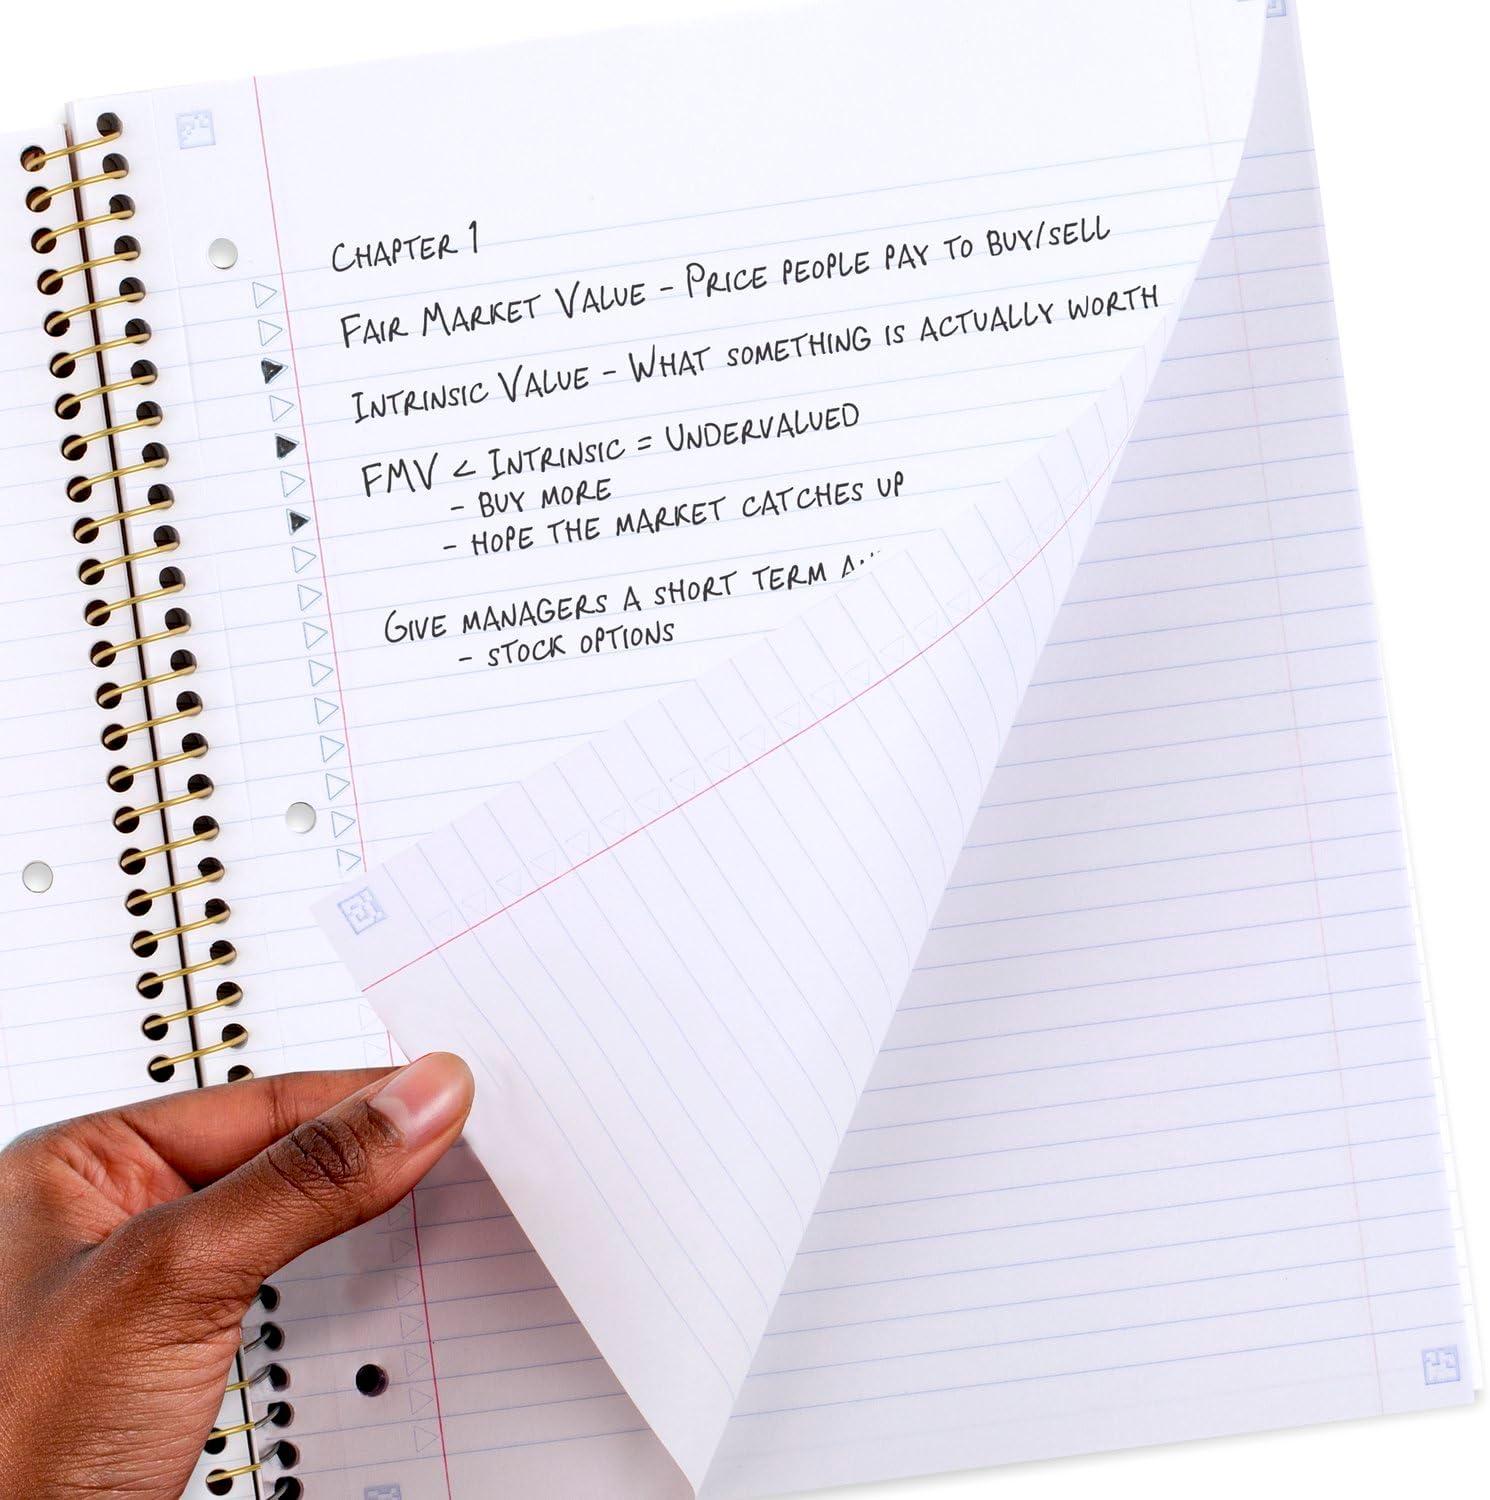 CHAPTER 1
FAIR MARKET VALUE - PRICE PEOPLE PAY TO BUY/SELL
INTRINSIC VALUE - WHAT SOMETHING IS ACTUALLY WORTH
FMV < INTRINSIC = UNDERVALUED
- BUY MORE
- HOPE THE MARKET CATCHES UP
GIVE MANAGERS A SHORT TERM
- STOCK OPTIONS